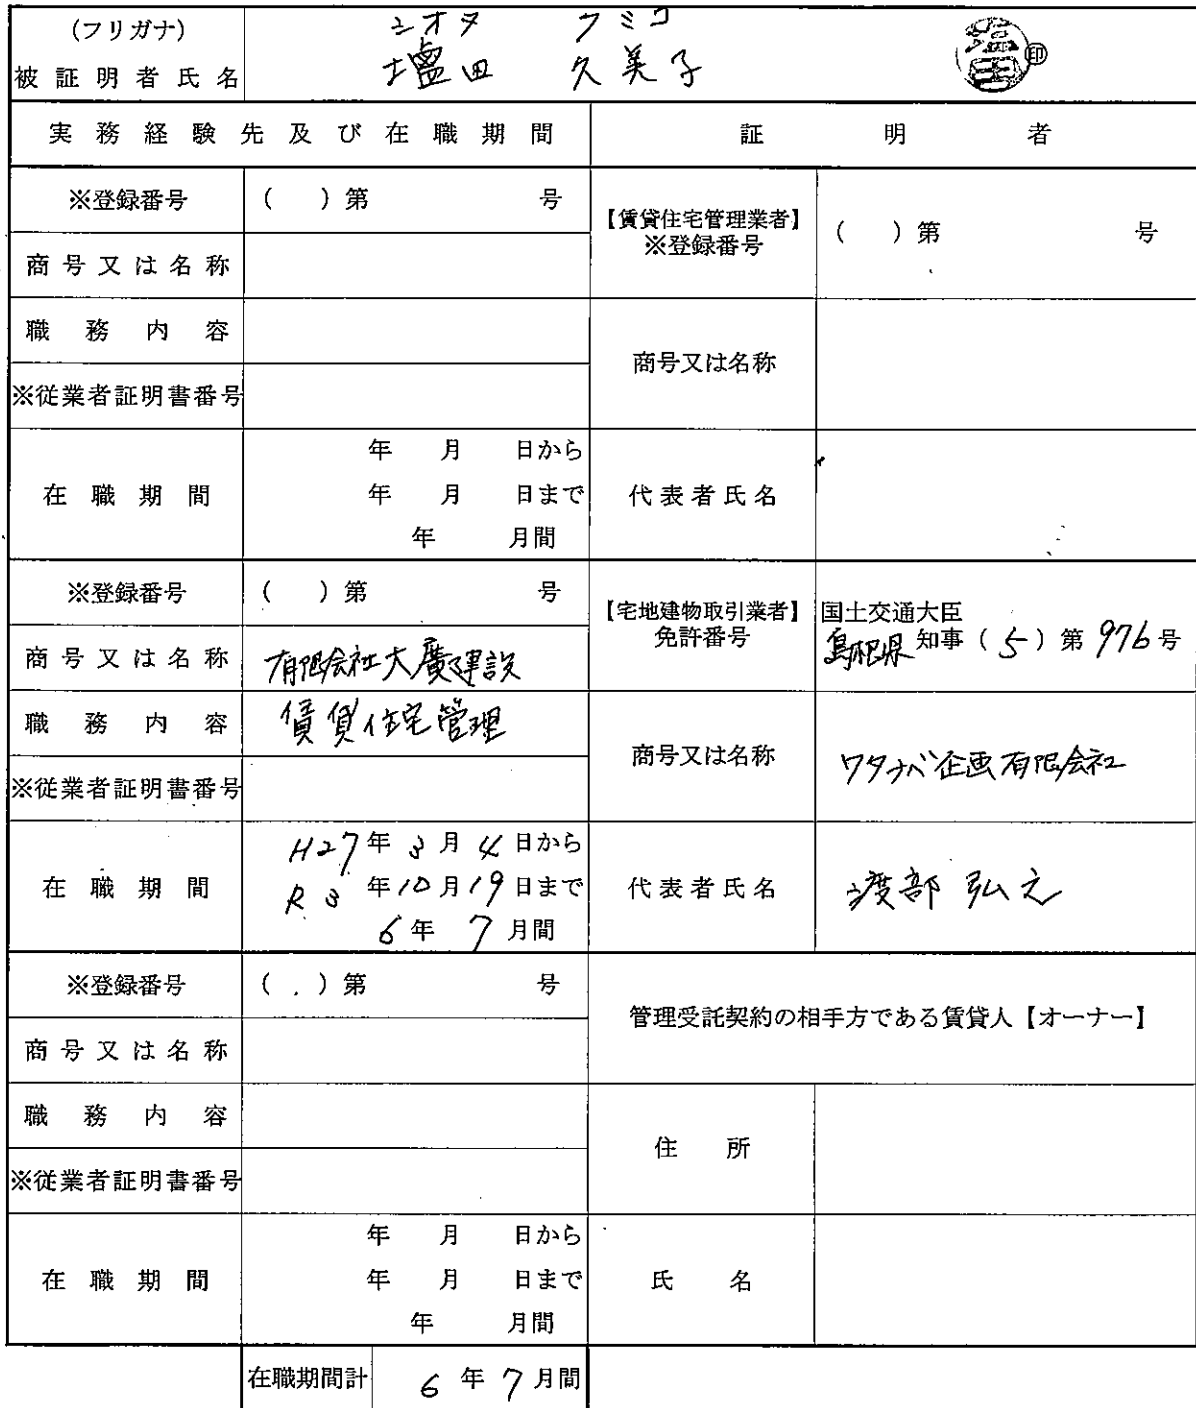 (フリガナ) シオタ フミコ
被証明者氏名 塩田 久美子 塩田 ㊞
実務経験先及び在職期間 証明者
※登録番号 ( )第 号 【賃貸住宅管理業者】※登録番号 ( )第 号
商号又は名称
職務内容 商号又は名称
※従業者証明書番号
在職期間 年 月 日から 代表者氏名
年 月 日まで
年 月間
※登録番号 ( )第 号 【宅地建物取引業者】免許番号 国土交通大臣
島根県 知事 (5)第 976号
商号又は名称 有限会社大廣建設
職務内容 賃貸住宅管理 商号又は名称 ワタナベ企画有限会社
※従業者証明書番号
在職期間 H27年 3月 4日から 代表者氏名 渡部 弘之
R3年10月19日まで
6年 7月間
※登録番号 ( )第 号 管理受託契約の相手方である賃貸人【オーナー】
商号又は名称
職務内容 住所
※従業者証明書番号
在職期間 年 月 日から 氏名
年 月 日まで
年 月間
在職期間計 6年7月間